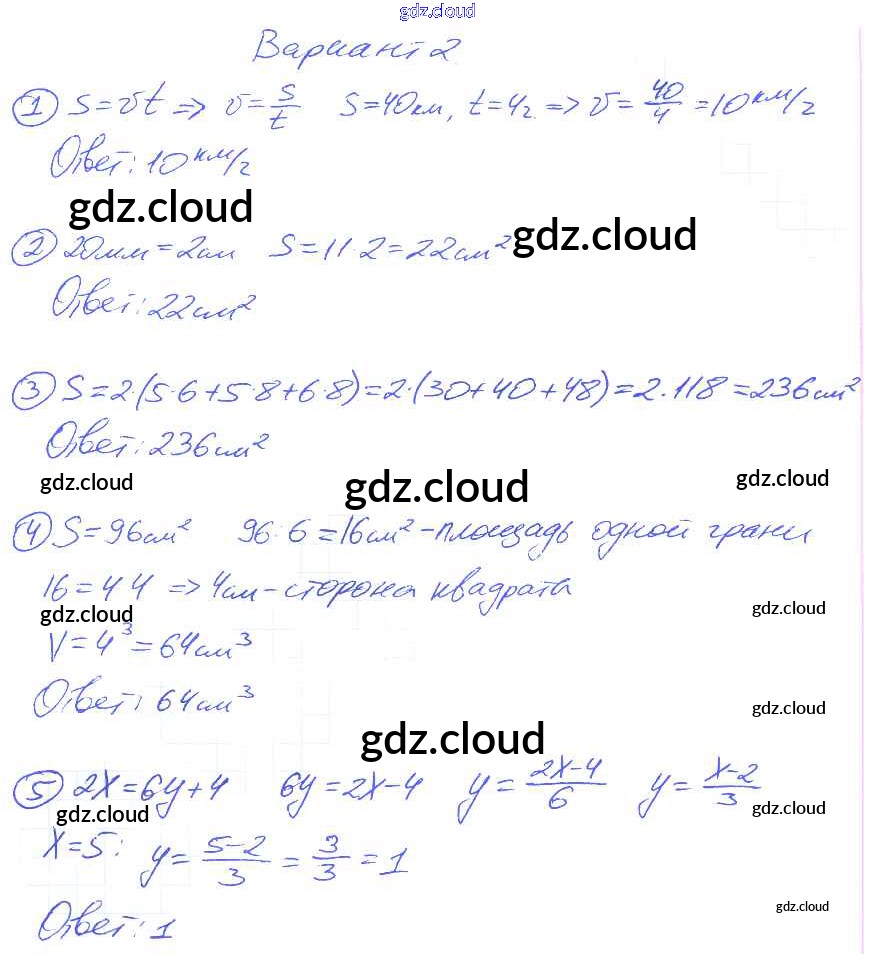 gdz.cloud
Вариант 2
① S=vt => v=S/t S=40км, t=4ч => v=40/4=10 км/ч
Ответ: 10 км/ч
gdz.cloud
② 20мм=2см S=11·2=22см² gdz.cloud
Ответ: 22см²
③ S=2·(5·6+5·8+6·8)=2·(30+40+48)=2·118=236см²
Ответ: 236см²
gdz.cloud gdz.cloud gdz.cloud
④ S=96см² 96:6=16см²-площадь одной грани
16=4·4 => 4см-сторона квадрата
gdz.cloud gdz.cloud
V=4³=64см³
Ответ: 64см³
gdz.cloud
gdz.cloud
⑤ 2x=6y+4 6y=2x-4 y=(2x-4)/6 y=(x-2)/3
gdz.cloud gdz.cloud
x=5: y=(5-2)/3=3/3=1
gdz.cloud
Ответ: 1